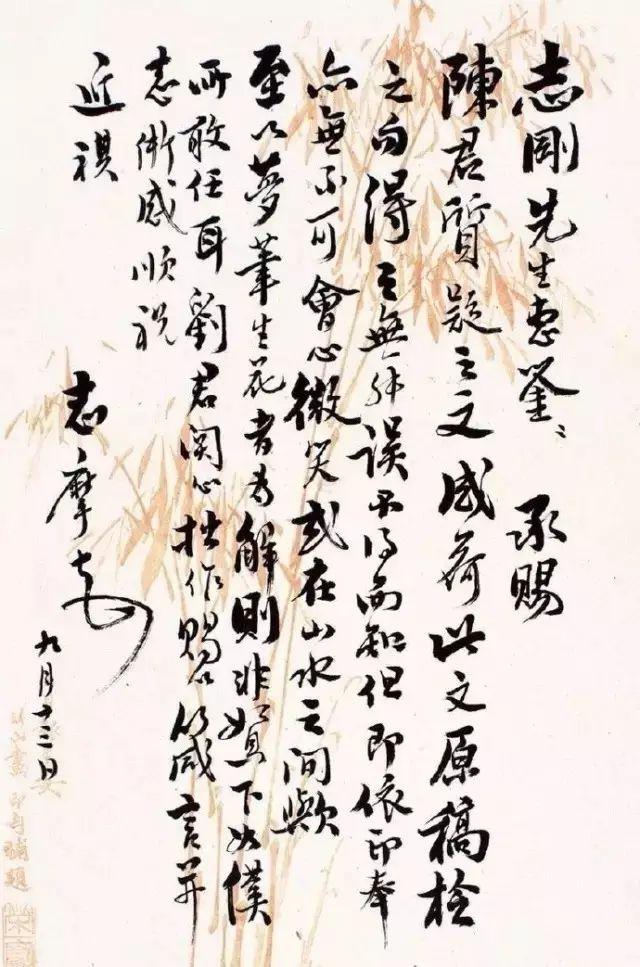 志剛先生惠鑒 承賜
陳君質疑之文感荷此文原稿檢
之勿得 無舛誤不得而知但即依印奉
亦無不可會心微笑或在山水之間歟
至以夢筆生花者為解則非 下如僕
所敢任耳劉君関心拙作賜以箴言并
志慚感順祝
近祺
志摩
九月十三日